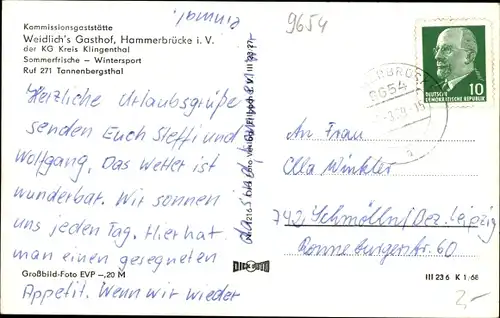 9654
Kommissionsgaststätte
Weidlich's Gasthof, Hammerbrücke i. V.
der KG Kreis Klingenthal
Sommerfrische – Wintersport
Ruf 271 Tannenbergsthal
Herzliche Urlaubsgrüße
senden Euch Steffi und
Wolfgang. Das Wetter ist
wunderbar. Wir sonnen
uns jeden Tag. Hier hat
man einen gesegneten
Appetit. Wenn wir wieder
da
einmal.
Großbild-Foto EVP –,20 M
DICK FOTO
9654
DEUTSCHE
DEMOKRATISCHE REPUBLIK
10
An Frau
Olla Winkler
742 Schmölln/Bez. Leipzig
Ronneburgerstr. 60
III 23 6 K 1/68